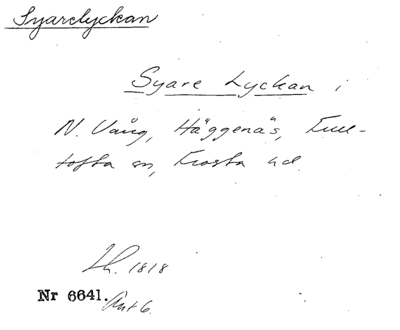 Syarelyckan
Syare Lyckan i
N. Vång, Häggenäs, Full-
tofta sn, Frosta hd.
Lh. 1818
Nr 6641. Akt 6.